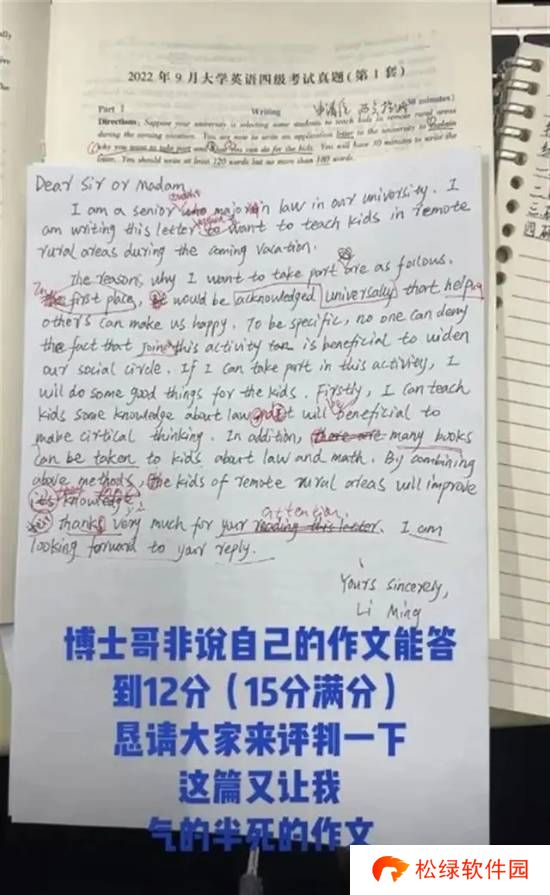 2022年9月大学英语四级考试真题(第1套)
Part I Writing (30 minutes)
Directions: Suppose your university is selecting some students to teach kids in remote rural areas
during the coming vacation. You are now to write an application letter to the university to explain
why you want to take part and what you can do for the kids. You will have 30 minutes to write the
letter. You should write at least 120 words but no more than 180 words.
Dear Sir or Madam
I am a senior who major in law in our university. I
am writing this letter to want to teach kids in remote
rural areas during the coming vacation.
The reasons why I want to take part are as follows.
The first place, would be acknowledged universally that help
others can make us happy. To be specific, no one can deny
the fact that join this activity is beneficial to widen
our social circle. If I can take part in this activity, I
will do some good things for the kids. Firstly, I can teach
kids some knowledge about law and it will beneficial to
make cirtical thinking. In addition, there are many books
can be taken to kids about law and math. By combining
above methods, the kids of remote rural areas will improve
its knowledge.
thanks very much for your reading this letter. I am
attention
looking forward to your reply.
Yours sincerely,
Li Ming
博士哥非说自己的作文能答
到12分(15分满分)
恳请大家来评判一下
这篇又让我
气的半死的作文
松绿软件园